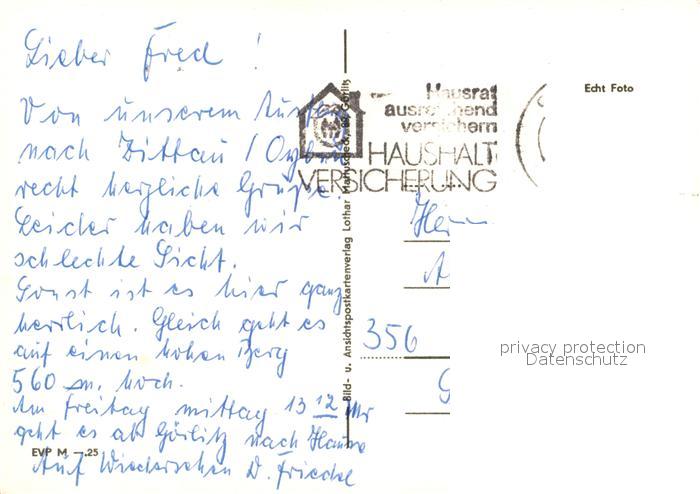 Lieber Fred!
Von unserem
nach Zittau / Oybin
recht herzliche Grüße.
Leider haben wir
schlechte Sicht.
Sonst ist es hier ganz
herrlich. Gleich geht es
auf einen hohen Berg
560 m. hoch.
Am Freitag mittag 13 12 Uhr
geht es ab Görlitz nach Hause
Auf Wiedersehen D. Friedel
EVP M —.25
Bild- u. Ansichtspostkartenverlag Lothar Görlitz
Hausrat
ausreichend
versichern
HAUSHALT
VERSICHERUNG
Echt Foto
356
privacy protection
Datenschutz